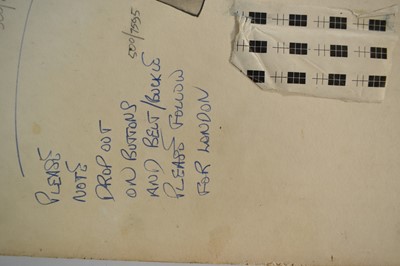 PLEASE
NOTE
DROP OUT
ON BUTTONS
AND BELT/BUCKLE
PLEASE FOLLOW
FOR LONDON